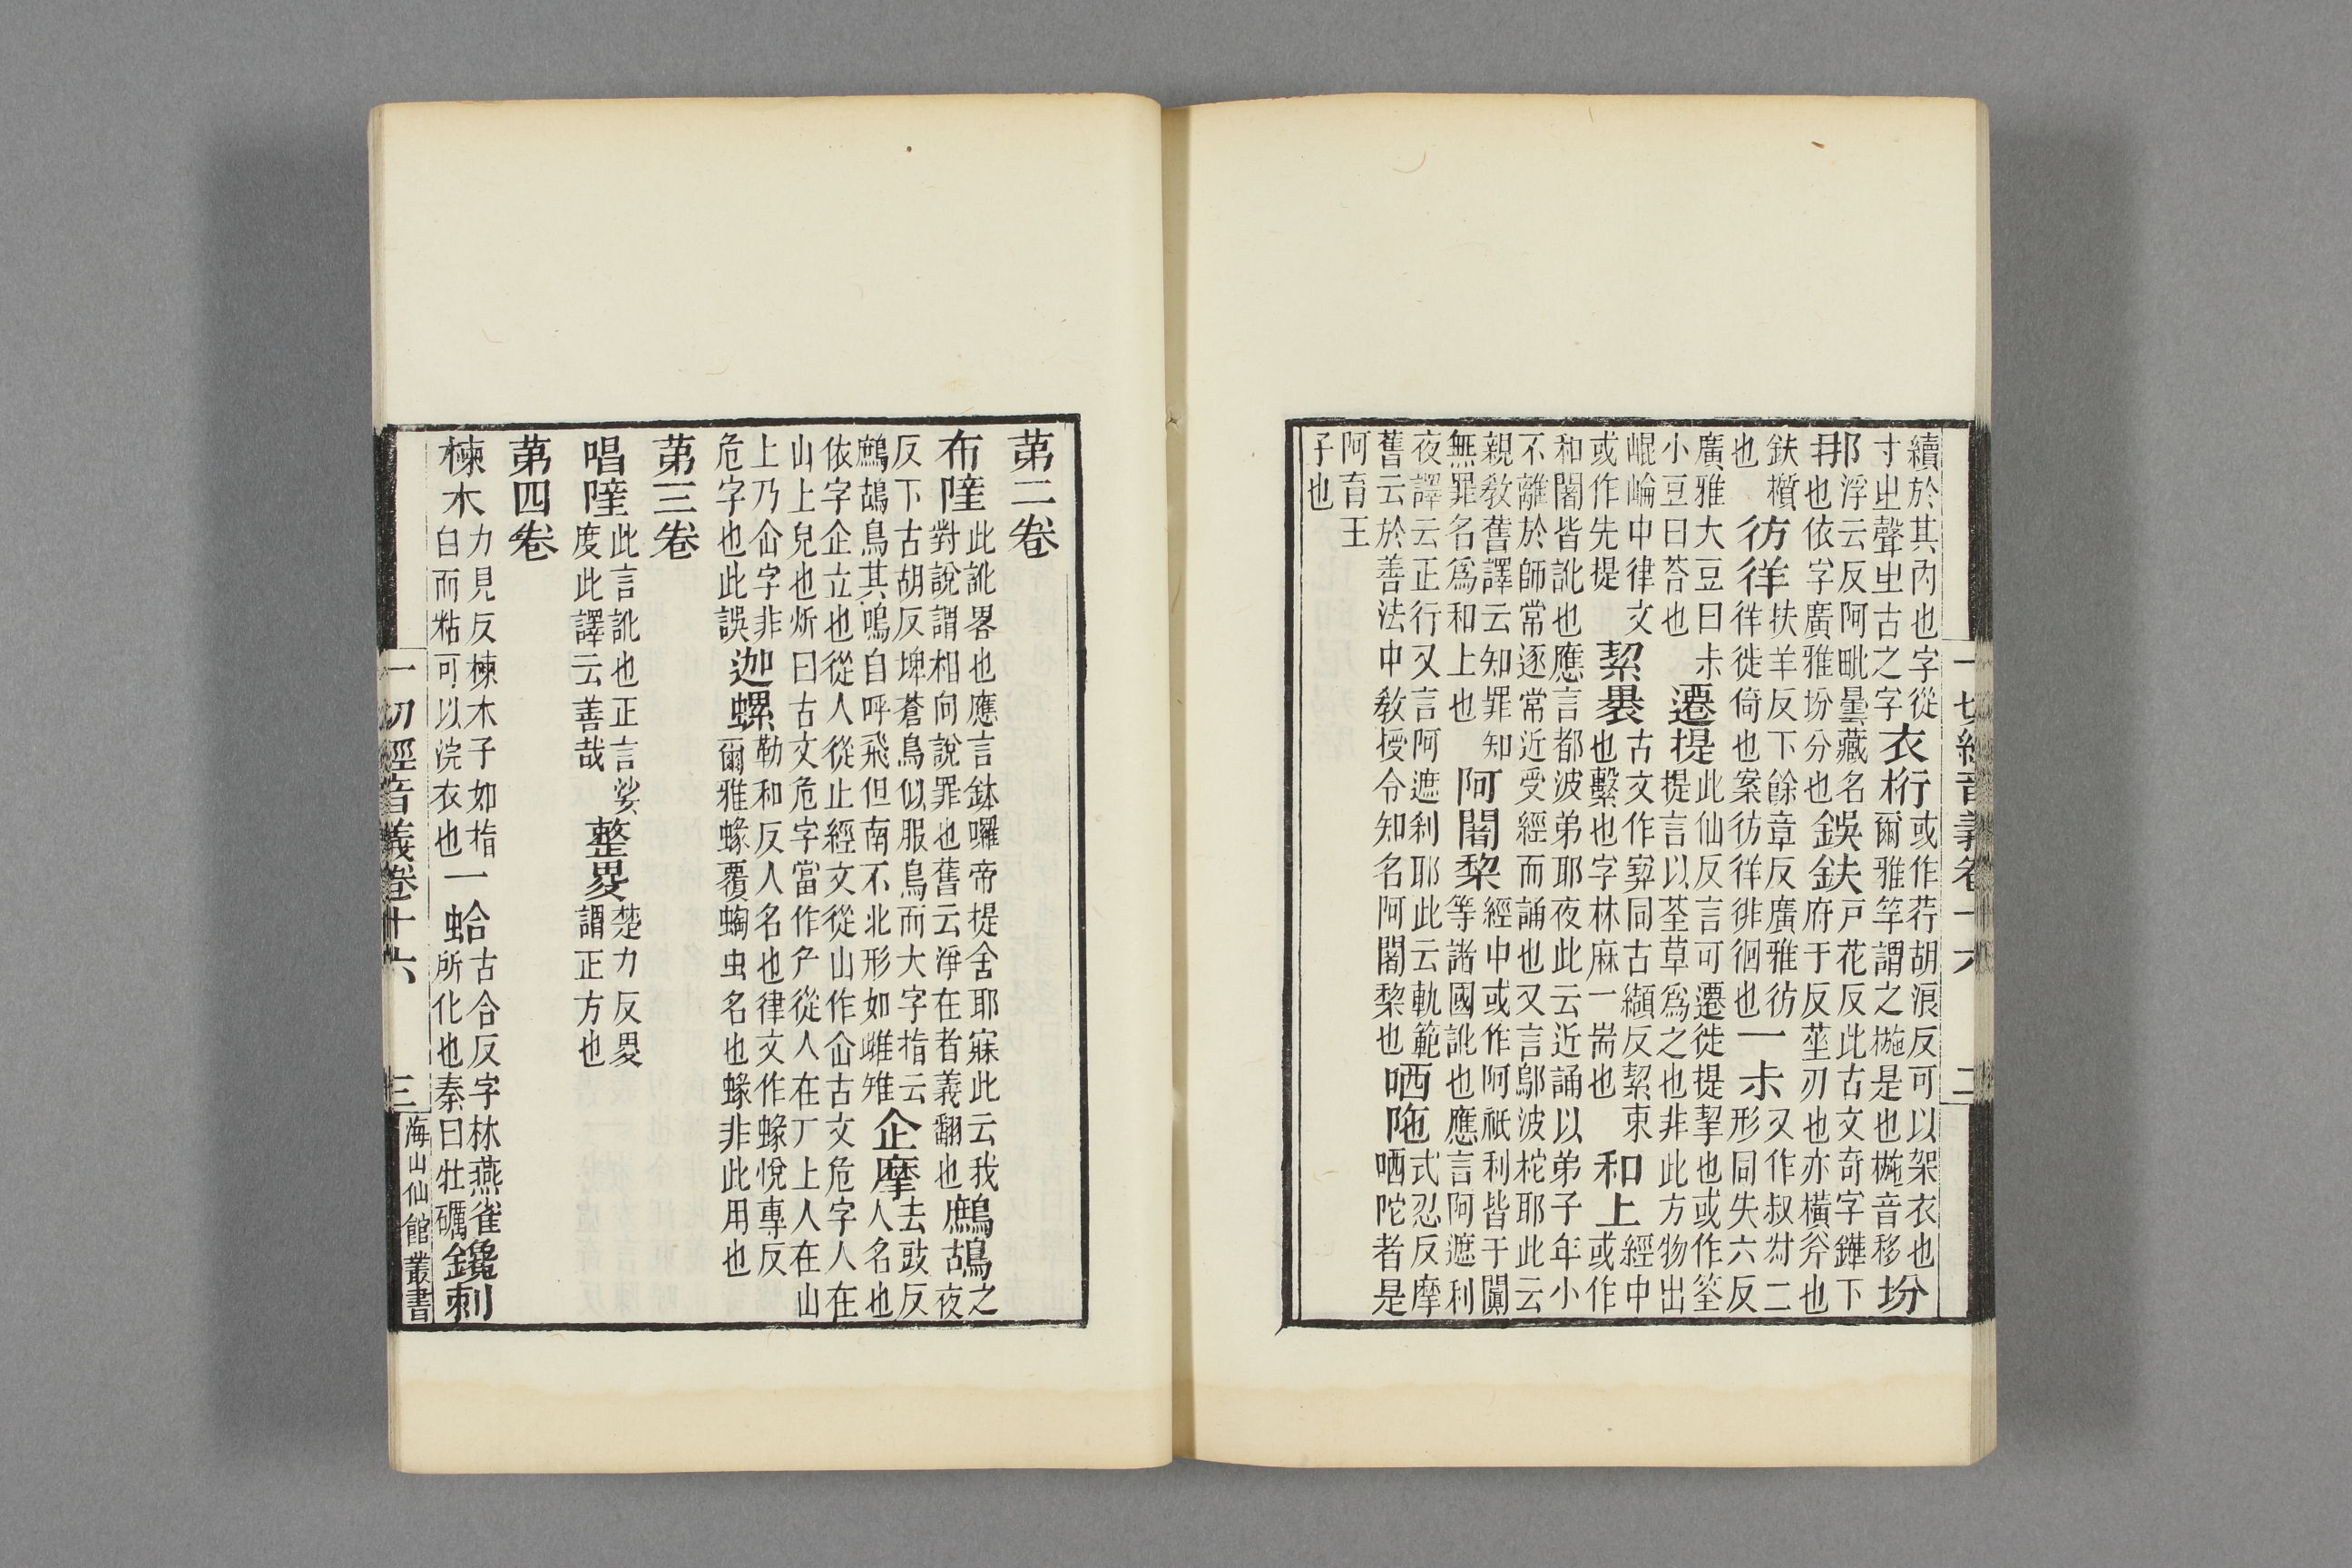 一切經音義卷十六 二
續於其內也字從寸㞢聲㞢古之字衣桁或作荇胡浪反可以架衣也爾雅竿謂之椸是也椸音移坋
那浮云反阿毗曇藏名也依字廣雅坋分也鋘鈇戸花反此古文奇字鏵下府于反莝刃也亦橫斧也
鈇櫍也彷徉扶羊反下餘章反廣雅彷徉徙倚也案彷徉徘徊也一尗又作叔𡬧二形同失六反
廣雅大豆曰尗小豆曰荅也遷提此仙反言可遷徙提挈也或作筌提言以荃草為之也非此方物出
崐崘中律文或作先提絜古文作同古纈反絜束也繫也字林麻一耑也和上經中或作
和闍皆訛也應言都波弟耶夜此云近誦以弟子年小不離於師常逐常近受經而誦也又言鄔波柁耶此云
親教舊譯云知罪知無罪名爲和上也阿闍棃經中或作阿祇利皆于闐等諸國訛也應言阿遮利
夜譯云正行又言阿遮利耶此云軌範舊云於善法中教授令知名阿闍棃也哂陁式忍反摩哂陀者是
阿育王子也
苐二卷
布隡此訛畧也應言鉢囉帝提舍耶寐此云我對說謂相向說罪也舊云淨在者義翻也鷓鴣之夜
反下古胡反埤蒼鳥似服鳥而大字指云鷓鴣鳥其鳴自呼飛但南不北形如雌雉企摩去豉反人名也
依字企立也從人從止經文從山作仚古文危字人在山上皃也炘曰古文危字當作厃從人在厂上人在山
上乃仚字非危字也此誤迦螺勒和反人名也律文作蝝悅專反爾雅蝝覆蜪虫名也蝝非此用也
苐三卷
唱隡此言訛也正言娑度此譯云善哉整畟楚力反畟謂正方也
苐四卷
楝木力見反楝木子如指白而粘可以浣衣也一蛤古合反字林燕雀所化也秦曰牡礪鑱刺
一切經音義卷十六 三 海山仙館叢書